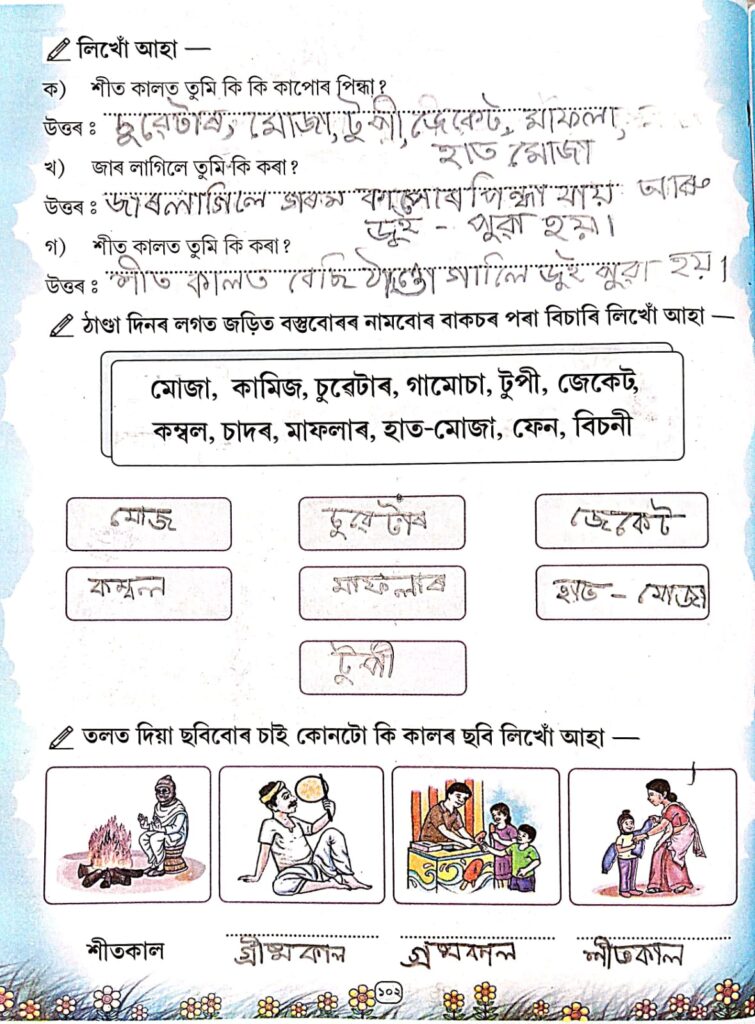 লিখোঁ আহা —
ক) শীত কালত তুমি কি কি কাপোৰ পিন্ধা?
উত্তৰ : চুৱেটাৰ, মোজা, টুপী, জেকেট, মাফলা,
হাত মোজা
খ) জাৰ লাগিলে তুমি কি কৰা?
উত্তৰ : জাৰলাগিলে গৰম কাপোৰ পিন্ধা যায় আৰু
জুই - পুৱা হয়।
গ) শীত কালত তুমি কি কৰা?
উত্তৰ : শীত কালত বেছি ঠাণ্ডা লাগিলে জুই পুৱা হয়।
ঠাণ্ডা দিনৰ লগত জড়িত বস্তুবোৰৰ নামবোৰ বাকচৰ পৰা বিচাৰি লিখোঁ আহা —
মোজা, কামিজ, চুৱেটাৰ, গামোচা, টুপী, জেকেট,
কম্বল, চাদৰ, মাফলাৰ, হাত-মোজা, ফেন, বিচনী
মোজ চুৱেটাঁৰ জেকেট
কম্বল মাফলাৰ হাত - মোজা
টুপী
তলত দিয়া ছবিবোৰ চাই কোনটো কি কালৰ ছবি লিখোঁ আহা —
শীতকাল গ্ৰীষ্মকাল গ্ৰষ্মকাল শীতকাল
১০২